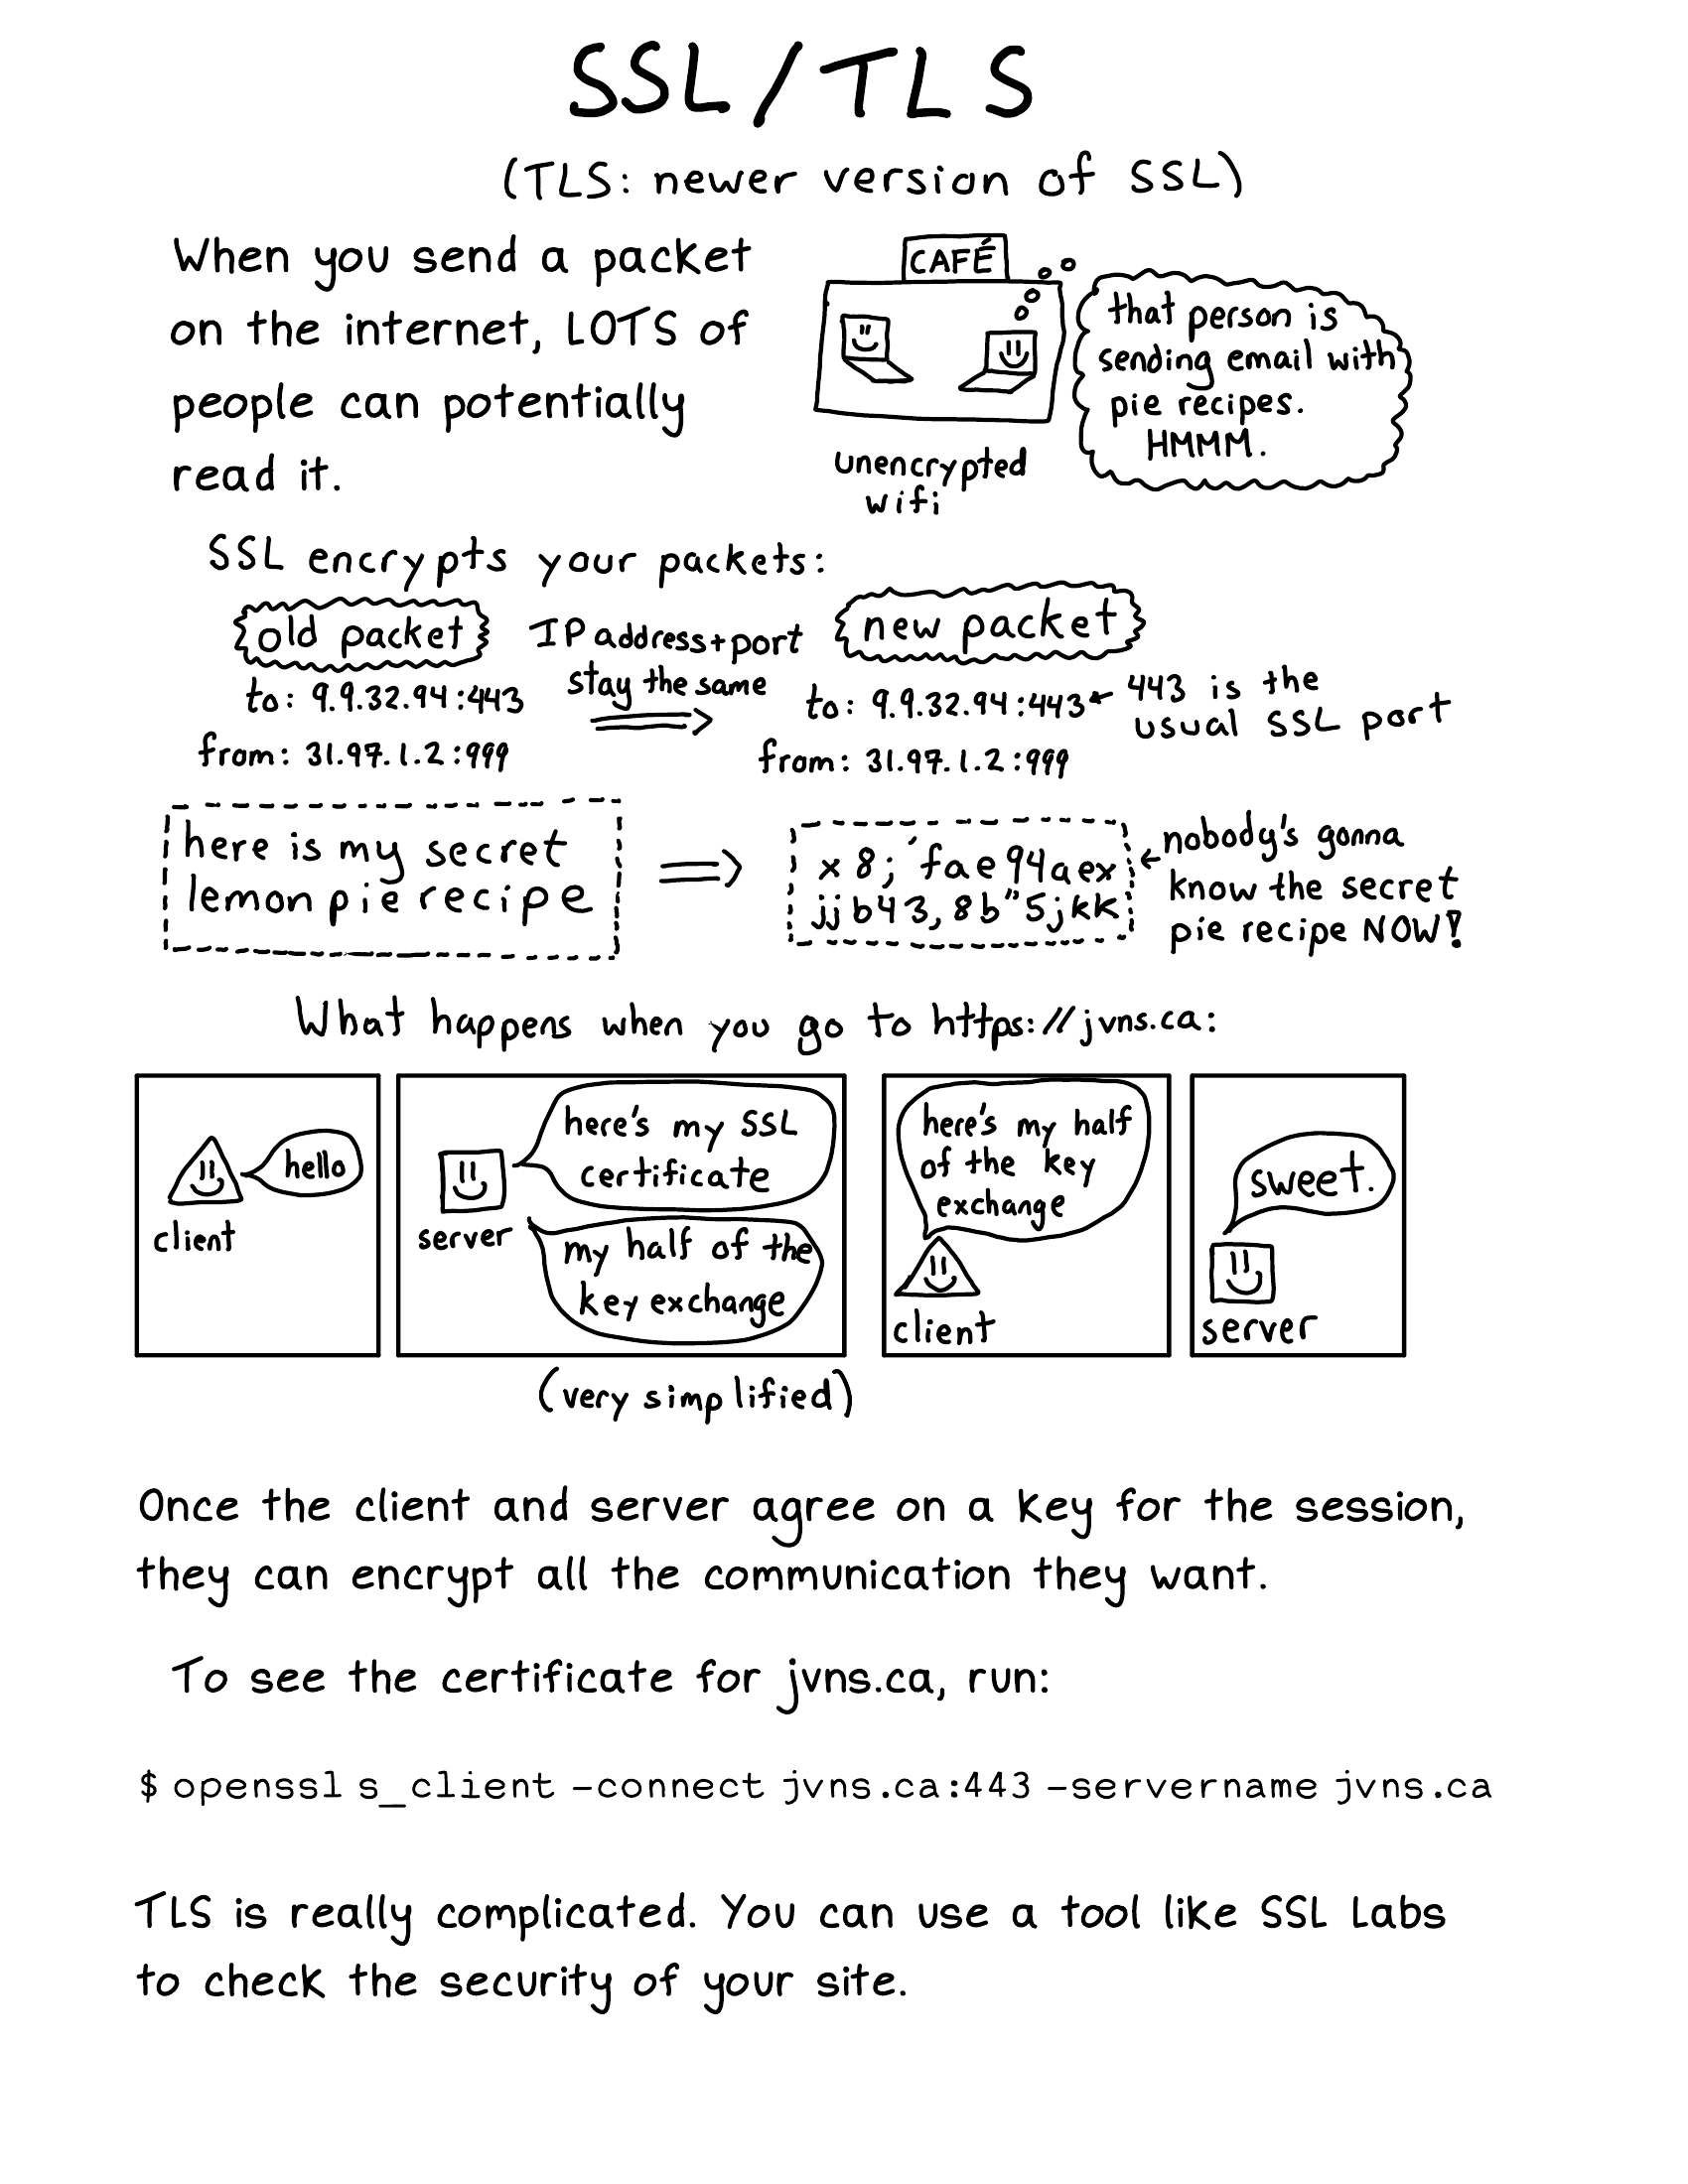 SSL/TLS
(TLS: newer version of SSL)
When you send a packet
on the internet, LOTS of
people can potentially
read it.
CAFÉ
that person is
sending email with
pie recipes.
HMMM.
unencrypted
wifi
SSL encrypts your packets:
old packet
to: 9.9.32.94:443
from: 31.97.1.2:999
IP address+port
stay the same
new packet
to: 9.9.32.94:443
from: 31.97.1.2:999
443 is the
usual SSL port
here is my secret
lemon pie recipe
x8;´fae94aex
jjb43,8b"5jkk
nobody's gonna
know the secret
pie recipe NOW!
What happens when you go to https://jvns.ca:
hello
client
here's my SSL
certificate
server
my half of the
key exchange
here's my half
of the key
exchange
client
sweet.
server
(very simplified)
Once the client and server agree on a key for the session,
they can encrypt all the communication they want.
To see the certificate for jvns.ca, run:
$ openssl s_client -connect jvns.ca:443 -servername jvns.ca
TLS is really complicated. You can use a tool like SSL Labs
to check the security of your site.